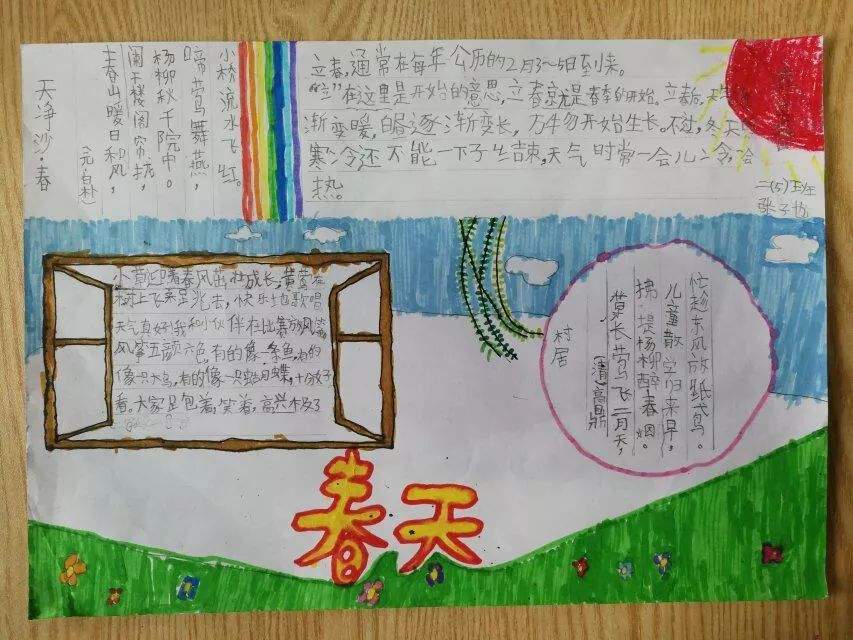 天净沙·春
(元 白朴)
春山暖日和风,
阑干楼阁帘栊,
杨柳秋千院中。
啼莺舞燕,
小桥流水飞红。
立春,通常在每年公历的2月3~5日到来。
“立”在这里是开始的意思,立春就是春季的开始。立春后,天气
渐变暖,白昼逐渐变长,万物开始生长。不过,冬天
寒冷还不能一下子结束,天气时常一会儿冷,会
热。
二(5)班
张子
小草迎着春风茁壮成长,黄莺在
树上飞来飞去,快乐地歌唱
天气真好!我和小伙伴在比赛放风筝
风筝五颜六色,有的像一条鱼,有的
像一只大鸟,有的像一只蝴蝶,十分好
看。大家跑着,笑着,高兴极了
村居
(清)高鼎
草长莺飞二月天,
拂堤杨柳醉春烟。
儿童散学归来早,
忙趁东风放纸鸢。
春天